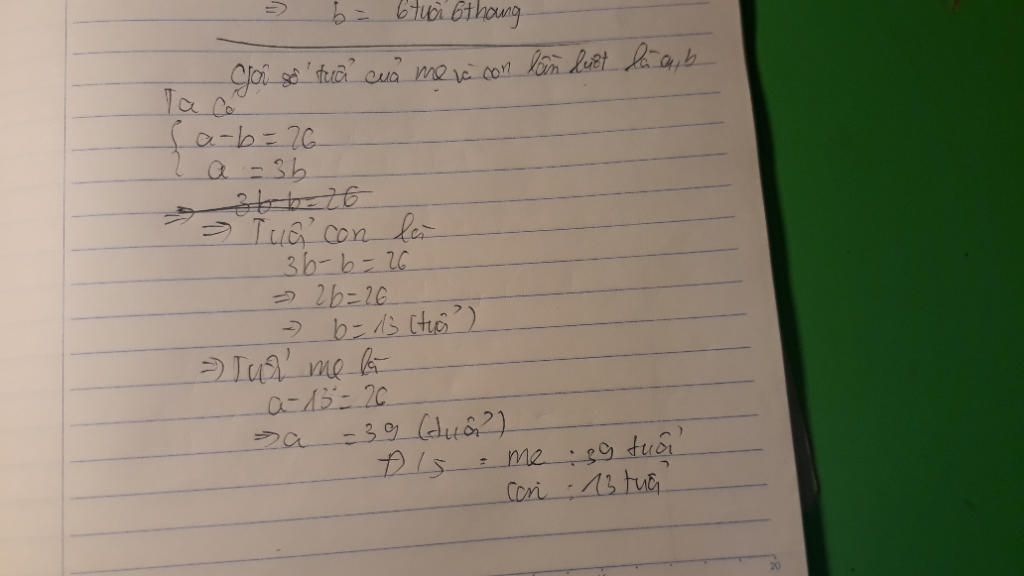 ⇒ b = 6 tuổi 6 thang
Gọi số tuổi của mẹ và con lần lượt là a, b
Ta có
{ a - b = 26
a = 3b
⇒ 3b - b = 26
⇒ Tuổi con là
3b - b = 26
⇒ 2b = 26
⇒ b = 13 (tuổi)
⇒ Tuổi mẹ là
a - 13 = 26
⇒ a = 39 (tuổi)
Đ/s : mẹ : 39 tuổi
con : 13 tuổi
20